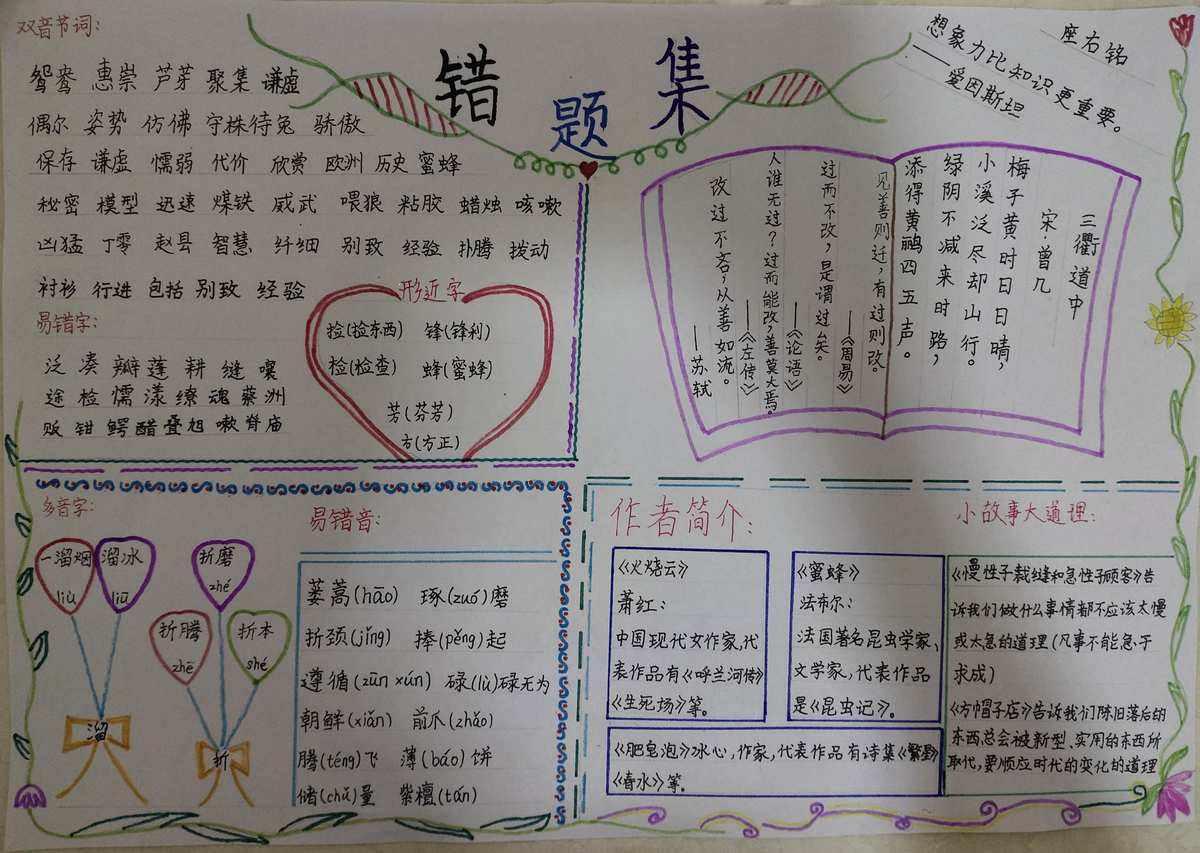 双音节词：
鸳鸯 惠崇 芦芽 聚集 谦虚
偶尔 姿势 仿佛 守株待兔 骄傲
保存 谦虚 懦弱 代价 欣赏 欧洲 历史 蜜蜂
秘密 模型 迅速 煤铁 威武 喂狼 粘胶 蜡烛 咳嗽
凶猛 丁零 赵县 智慧 纤细 别致 经验 扑腾 拨动
衬衫 行进 包括 别致 经验
易错字：
泛 凑 瓣 蓬 耕 缝 嚷
途 检 懦 漾 缭 魂 蔡 洲
贩 钳 鳄 醋 叠 旭 嗽 脊 庙
形近字
捡(捡东西) 锋(锋利)
检(检查) 蜂(蜜蜂)
芳(芬芳)
方(方正)
错题集
座右铭
想象力比知识更重要。
——爱因斯坦
三衢道中
宋·曾几
梅子黄时日日晴，
小溪泛尽却山行。
绿阴不减来时路，
添得黄鹂四五声。
见善则迁，有过则改。
——《周易》
过而不改，是谓过矣。
——《论语》
人谁无过？过而能改，善莫大焉。
——《左传》
改过不吝，从善如流。
——苏轼
多音字：
一溜烟
liù
溜冰
liū
溜
折磨
zhé
折腾
zhē
折本
shé
折
易错音：
蒌蒿(hāo) 琢(zuó)磨
折颈(jǐng) 捧(pěng)起
遵循(zūn xún) 碌(lù)碌无为
朝鲜(xiǎn) 前爪(zhǎo)
腾(téng)飞 薄(báo)饼
储(chǔ)量 紫檀(tán)
作者简介：
《火烧云》
萧红：
中国现代女作家，代
表作品有《呼兰河传》
《生死场》等。
《蜜蜂》
法布尔：
法国著名昆虫学家、
文学家，代表作品
是《昆虫记》。
《肥皂泡》冰心，作家，代表作品有诗集《繁星》
《春水》等。
小故事大道理：
《慢性子裁缝和急性子顾客》告
诉我们做什么事情都不应该太慢
或太急的道理(凡事不能急于
求成)
《方帽子店》告诉我们陈旧落后的
东西总会被新型、实用的东西所
取代，要顺应时代的变化的道理